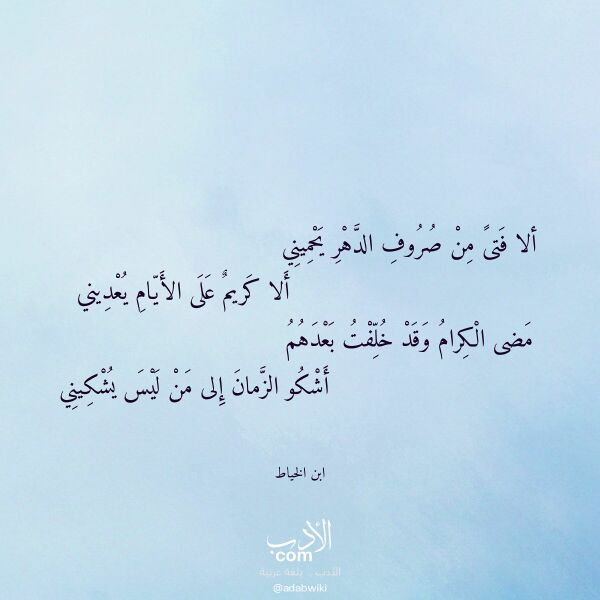 ألا فَتىً مِنْ صُرُوفِ الدَّهْرِ يَحْمِينِي
أَلا كَرِيمٌ عَلَى الأَيّامِ يُعْدِيني
مَضى الْكِرامُ وَقَدْ خُلِّفْتُ بَعْدَهُمُ
أَشْكُو الزَّمانَ إِلى مَنْ لَيْسَ يُشْكِينِي
ابن الخياط
الأدب
com
الأدب .. بلغة عربية
@adabwiki